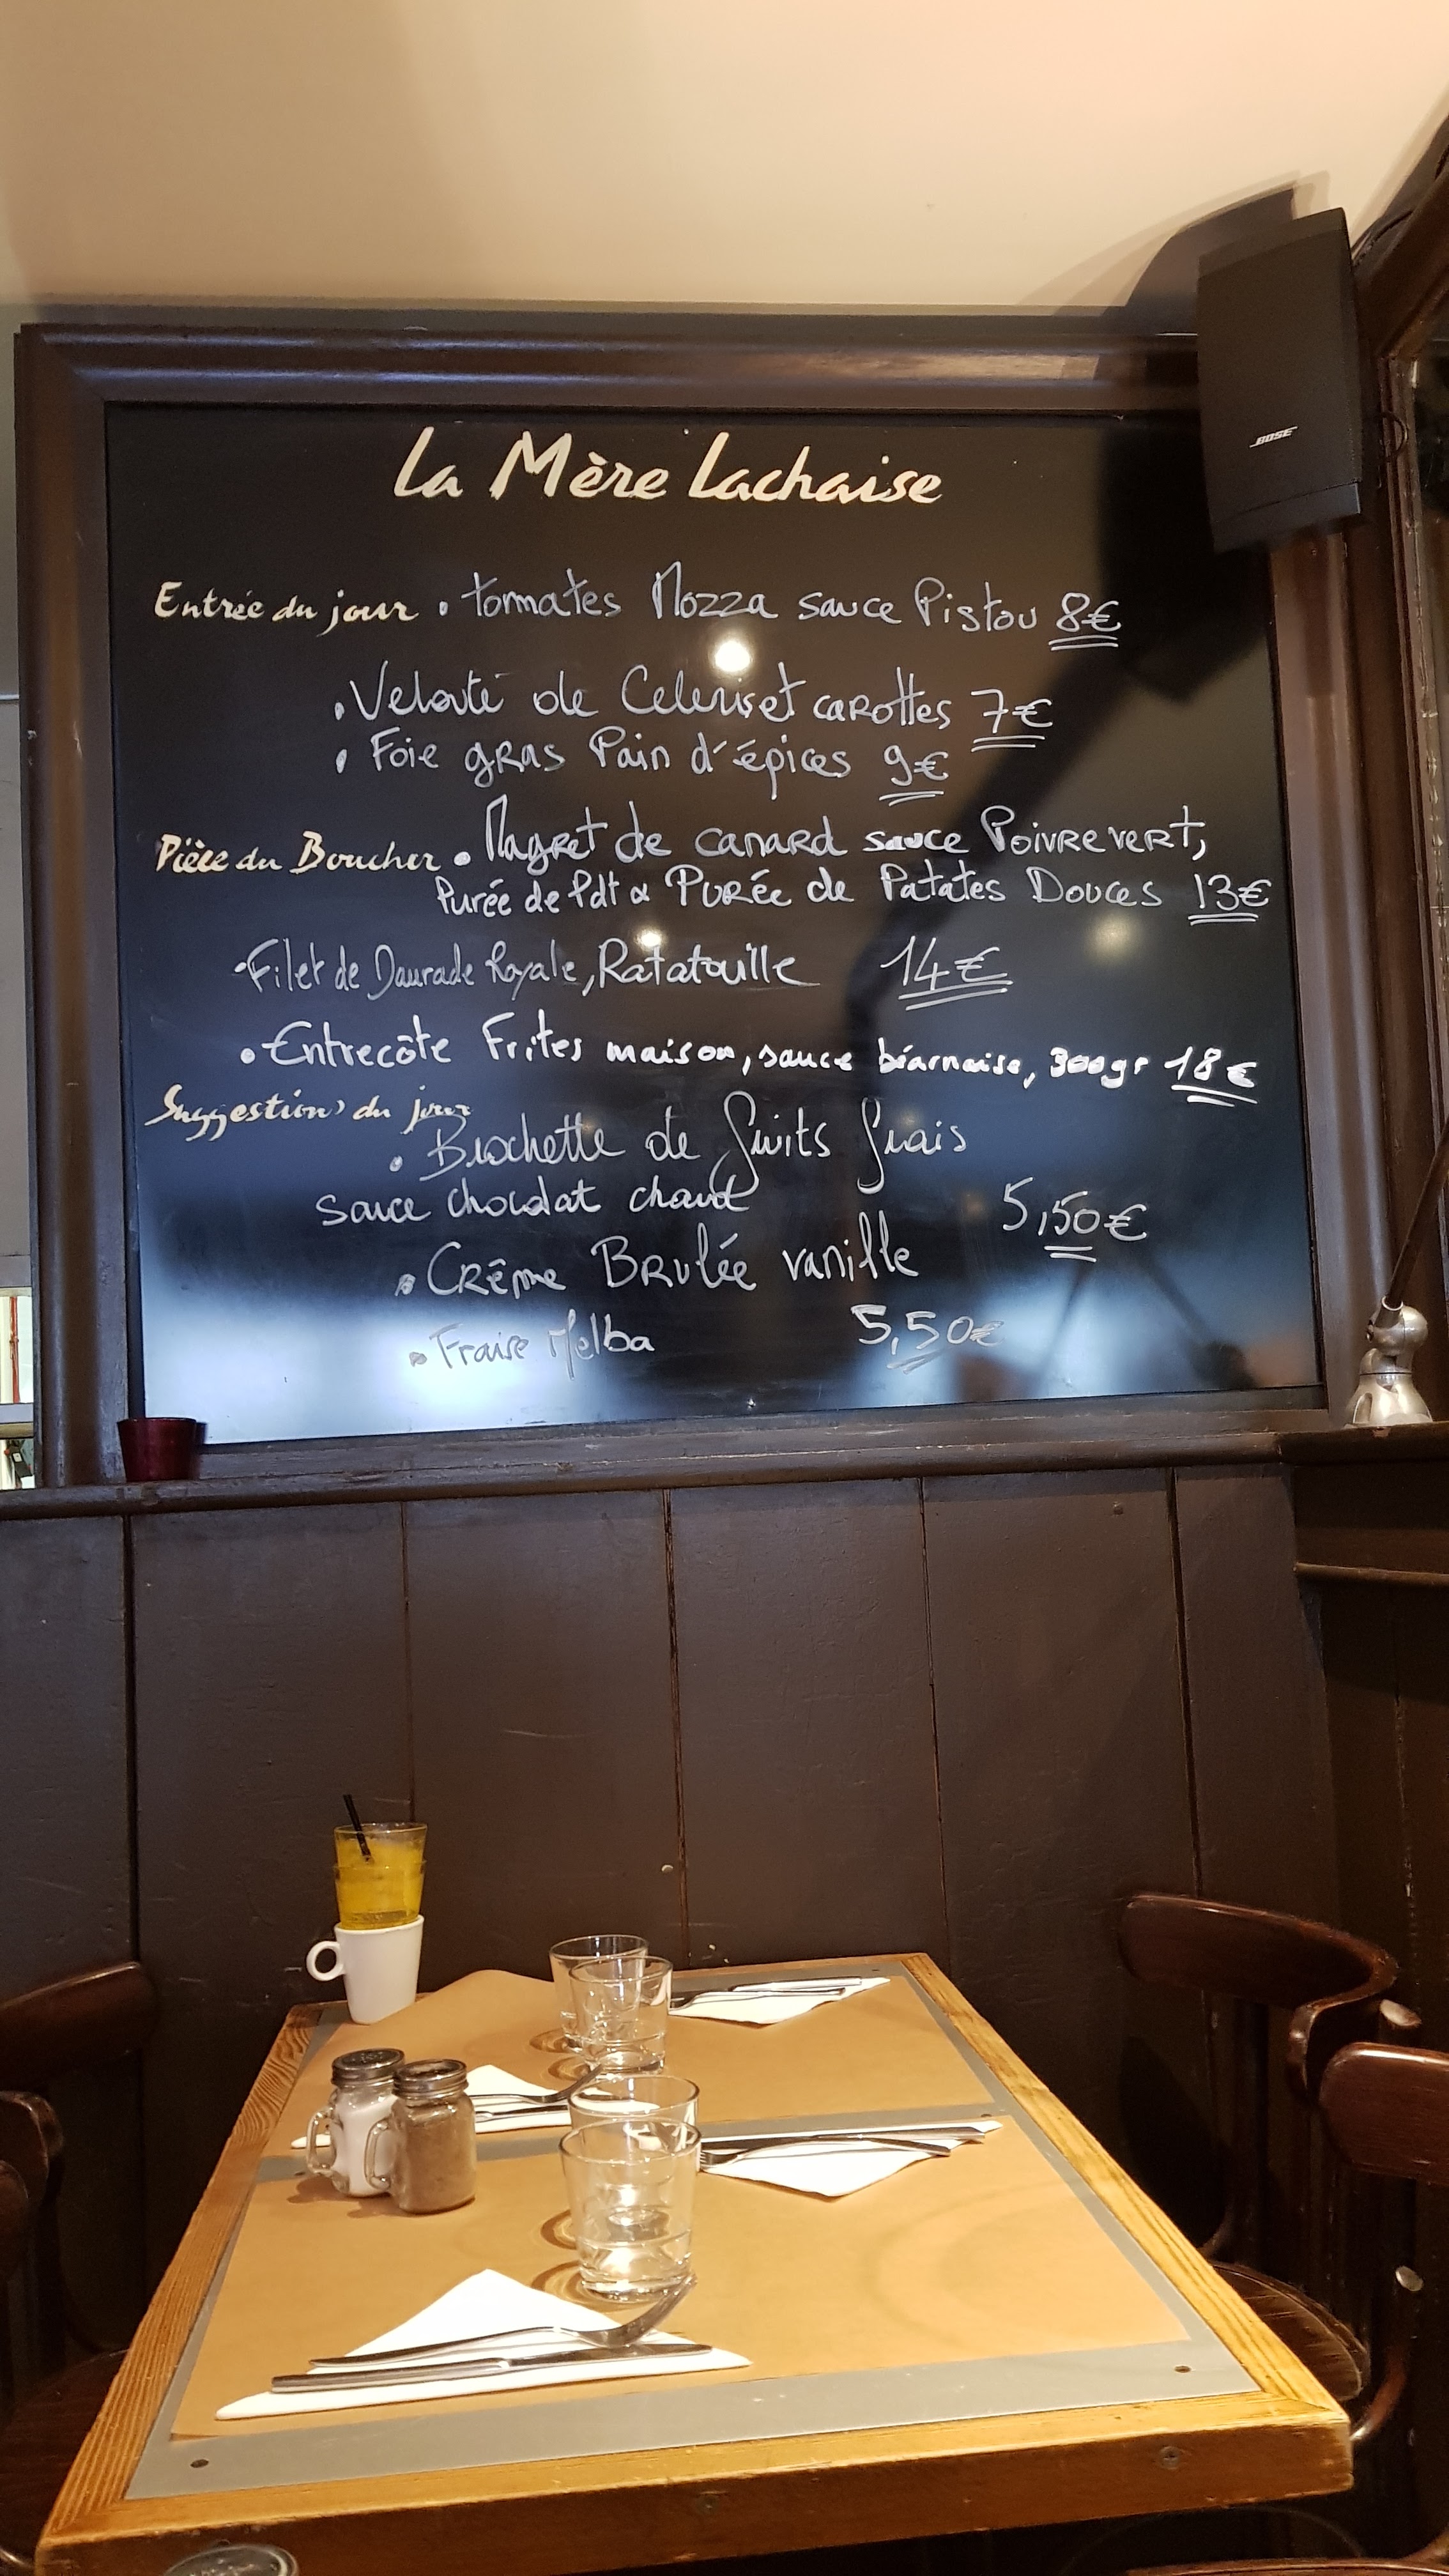 BOSE
La Mère Lachaise
Entrée du jour • tomates Mozza sauce Pistou 8€
• Velouté de Celeris et carottes 7€
• Foie gras Pain d'épices 9€
Pièce du Boucher • Magret de canard sauce Poivre vert,
Purée de Pdt & Purée de Patates Douces 13€
• Filet de Daurade Royale, Ratatouille 14€
• Entrecôte Frites maison, sauce béarnaise, 300gr 18€
Suggestions du jour
• Brochette de fruits frais
sauce chocolat chaud 5,50€
• Crême Brulée vanille
• Fraise Melba 5,50€